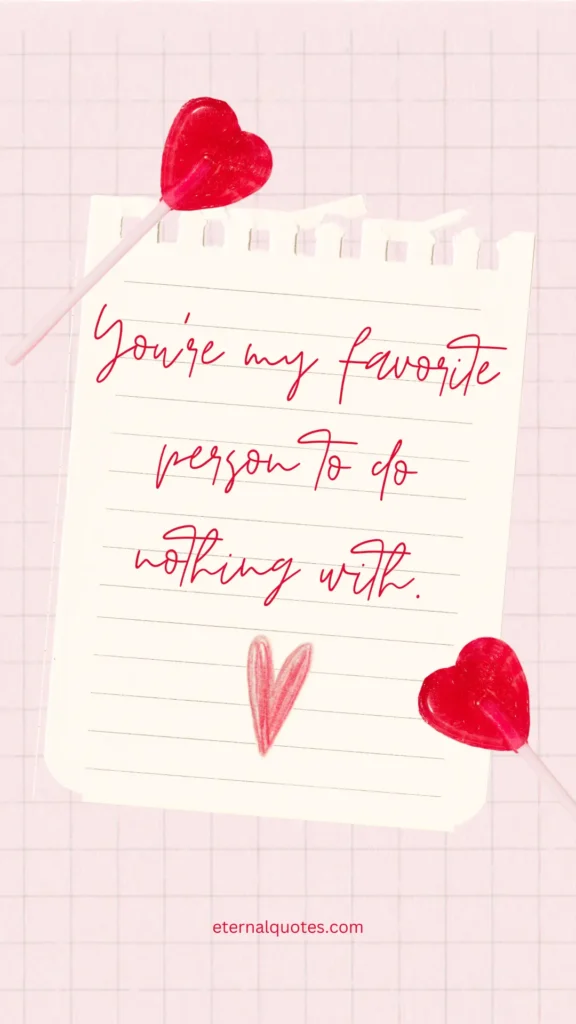 You're my favorite
person to do
nothing with.
eternalquotes.com